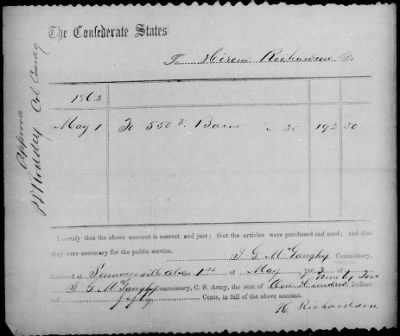 The Confederate States
To Hiram Richardson Dr
1862
May 1 To 550 lbs Bacon 35 192 50
I certify that the above account is correct and just; that the articles were purchased and used; and that
they were necessary for the public service.
Commissary.
Received at Summerville 1st of May
Commissary, C. S. Army, the Sum of One Hundred Ninety Two Dollars
and fifty Cents, in full of the above account.
H. Richardson
Approved
Col Comdg